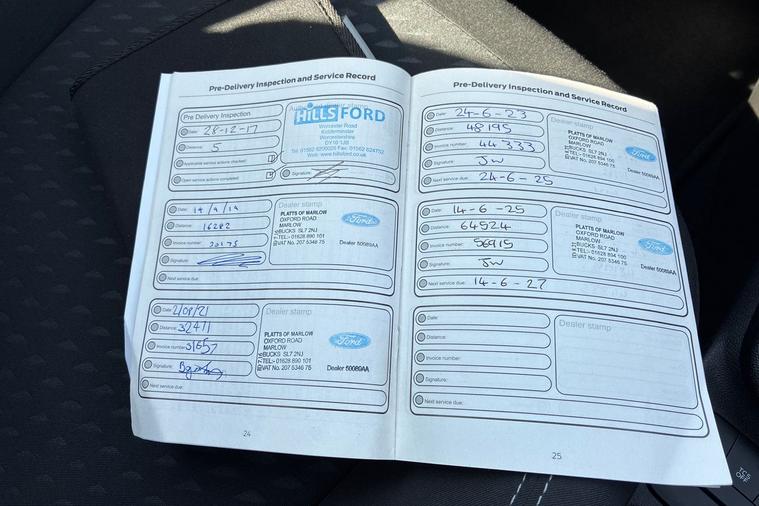 Pre-Delivery Inspection and Service Record
Pre Delivery Inspection
Date: 28-12-17
Distance: 5
Applicable service actions checked:
Open service actions completed:
HILLS FORD
Worcester Road
Kidderminster
Worcestershire
Web: www.hillsford.co.uk
Signature:
Date:
Distance: 16282
Invoice number: 20175
Signature:
Next service due:
Dealer stamp
PLATTS OF MARLOW
OXFORD ROAD
MARLOW
BUCKS SL7 2NJ
TEL:- 01628 890 101
VAT No. 207 5346 75
Ford
Dealer 50089AA
Date: 2/08/21
Distance: 32471
Invoice number: 31657
Signature:
Next service due:
Dealer stamp
PLATTS OF MARLOW
OXFORD ROAD
MARLOW
BUCKS SL7 2NJ
TEL:- 01628 890 101
VAT No. 207 5346 75
Ford
Dealer 50089AA
24
Pre-Delivery Inspection and Service Record
Date: 24-6-23
Distance: 48195
Invoice number: 44333
Signature: JW
Next service due: 24-6-25
Dealer stamp
PLATTS OF MARLOW
OXFORD ROAD
MARLOW
BUCKS SL7 2NJ
TEL:- 01628 894 100
VAT No. 207 5346 75
Ford
Dealer 50089AA
Date: 14-6-25
Distance: 64524
Invoice number: 56915
Signature: JW
Next service due: 14-6-27
Dealer stamp
PLATTS OF MARLOW
OXFORD ROAD
MARLOW
BUCKS SL7 2NJ
TEL:- 01628 894 100
VAT No. 207 5346 75
Ford
Dealer 50089AA
Date:
Distance:
Invoice number:
Signature:
Next service due:
Dealer stamp
25
TCS
OFF